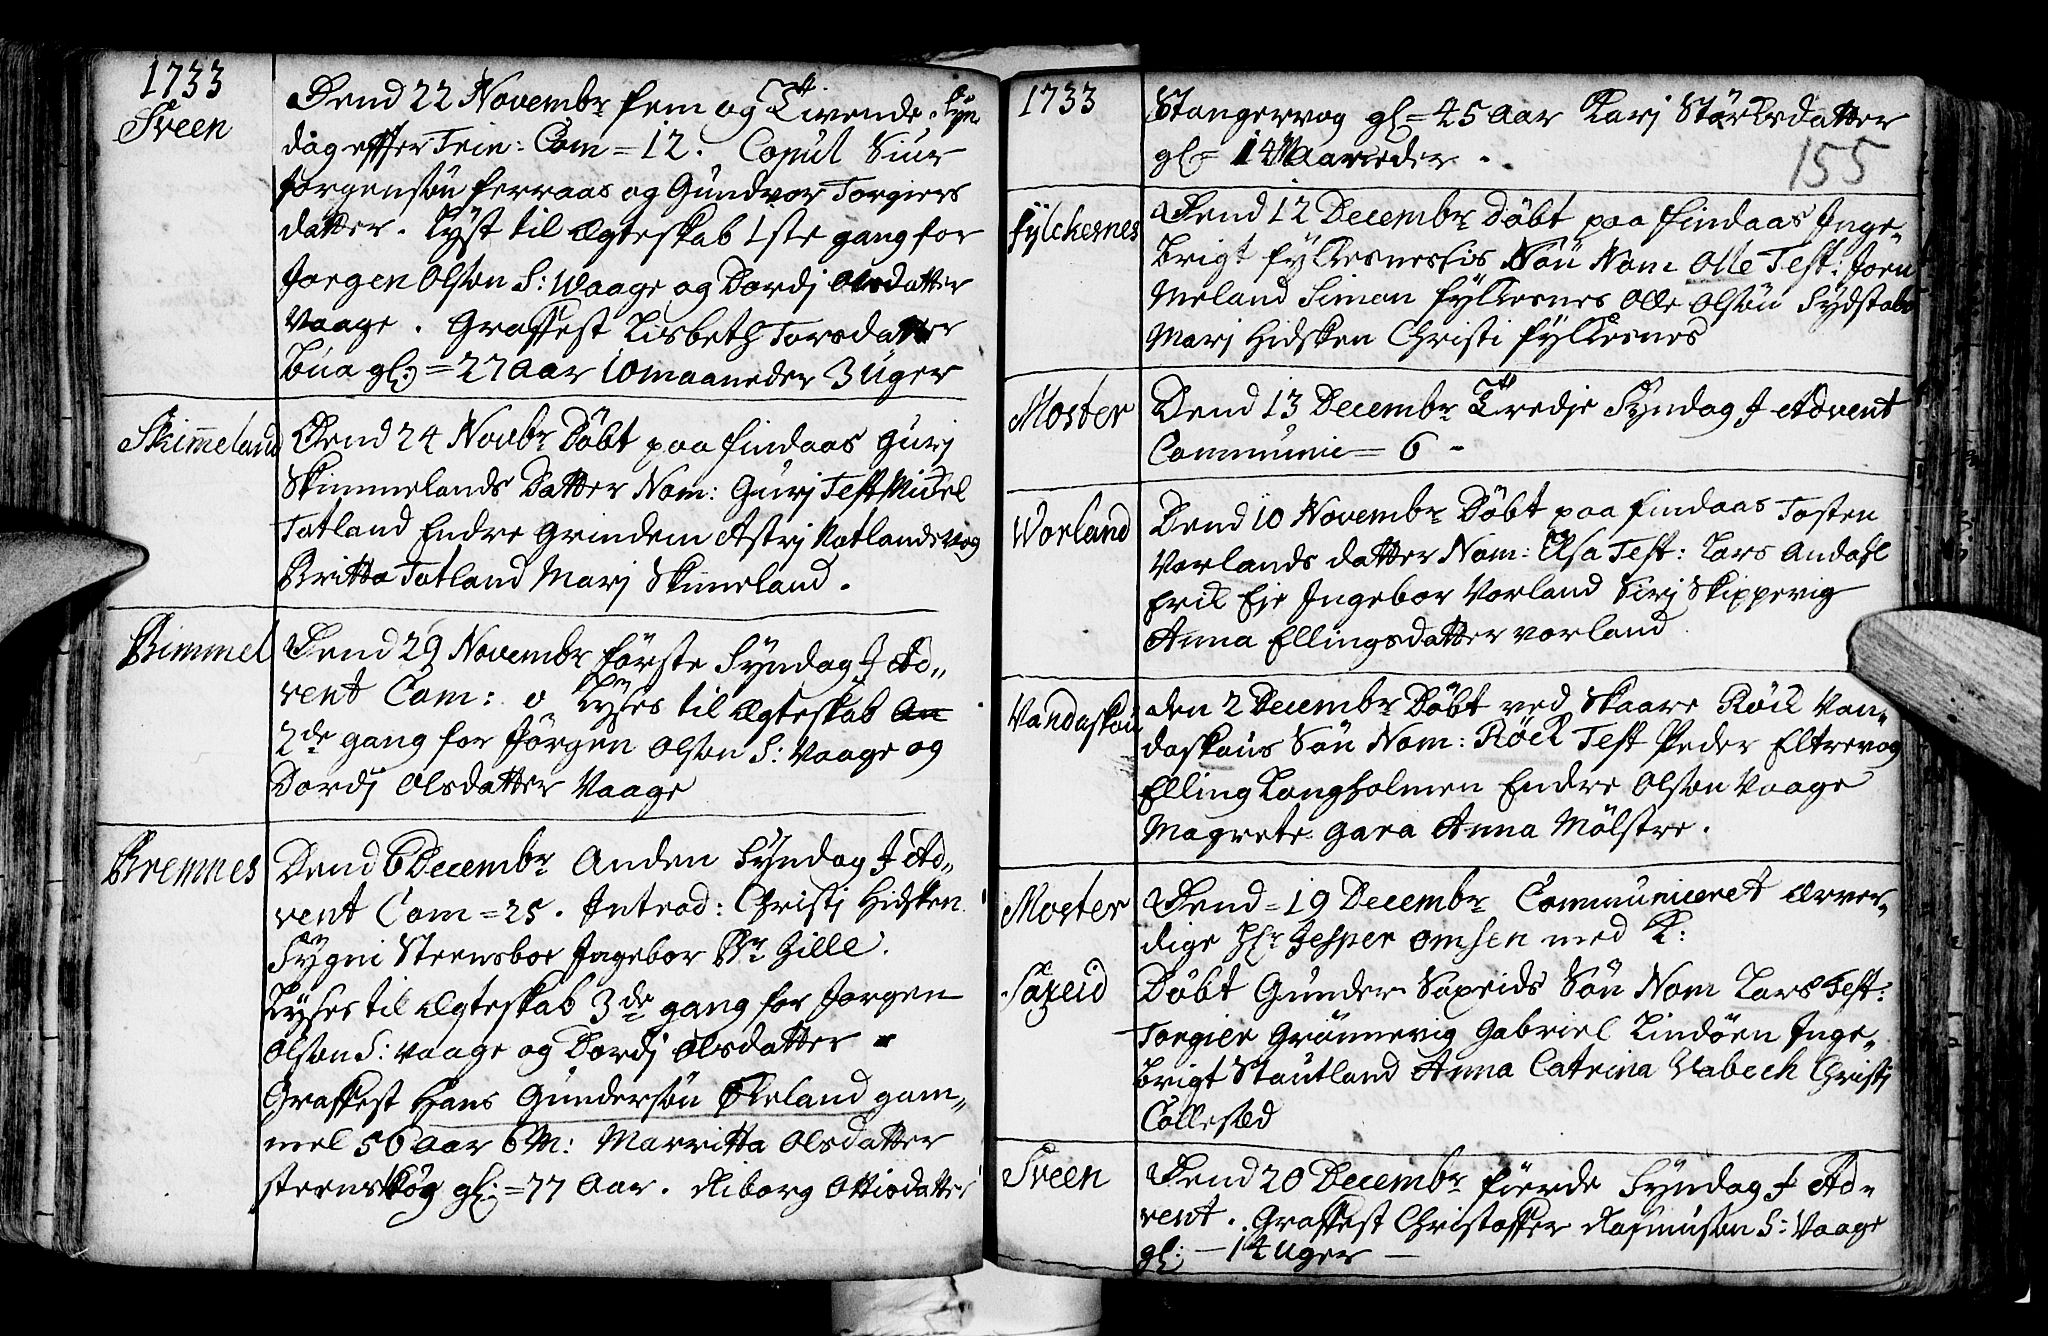 1733
Sveen
Dend 22 Novembr fem og Tivende Syn-
dag effter Trin: Com = 12. Copul Siur
Jorgensøn ferraas og Gundvor Torgiers
datter. Lyst til ægteskab 1ste gang for
Jorgen Olson S: Waage og Dordj Olsdatter
Vaage. Graffest Lisbeth Torsdatter
Bua gl: = 27 Aar 10 maaneder 3 Uger
Skimeland
Dend 24 Novbr Døbt paa findaas Gurj
Skimmelands Datter Nom: Gurj Test Mickel
Totland Endre Grindem Astrj Rotlandsvog
Britta Totland Marj Skimeland.
Rimmel
Dend 29 Novembr første Syndag J Ad„
vent Com: 0 Lyses til ægteskab An
2de gang for Jørgen Olson S: Vaage og
Dordj Olsdatter Vaage
Bremnes
Dend 6 Decembr Anden Syndag J Ad„
vent Com = 25. Introd: Christj Hidsken
Sygni Steensboe Ingebor Gille.
Lyses til ægteskab 3de gang for Jorgen
Olson S: Vaage og Dordj Olsdatter
Graffest Hans Gundersøn Økeland gam„
mel 56 Aar 6 M: Marritta Olsdatter
steenskøg gl: = 77 Aar. Riborg Ottisdatter
1733
155
Stangervog gl = 45 Aar Karj Størksdatter
gl = 14 Maaneder.
fylckesnes
Dend 12 Decembr Døbt paa findaas Inge„
brigt fylkesnesis Søn Nom Olle Test: Joen
Meland Simon fylkesnes Olle Olsøn Sydstabø
Marj Hidsken Christi fylkesnes
Moster
Dend 13 Decembr Tredje Syndag J Advent
Communic = 6 -
Worland
Dend 10 Novembr Døbt paa findaas Tosten
Vorlands datter Nom: Elsa Test: Lars Andahl
Erik Eje Ingebor Vorland Sirj Skippevig
Anna Ellingsdatter vorland
Vandaskou
den 2 Decembr Døbt ved Skaare Røck Van„
daskous Søn Nom: Røck Test Peder Eltrevog
Elling Langholmen Endre Olson Vaage
Magrete Gara Anna Mølstre.
Moster
Dend = 19 Decembr Communiceret Ærver„
dige Hr Jesper Omsen med K:
Saxeid
Døbt Gunder Saxeids Søn Nom Lars Test:
Torgier Grønnevig Gabriel Lindøen Inge„
brigt Stautland Anna Catrina Vabech Christj
Collesæd
Sveen
Dend 20 Decembr fierde Syndag J Ad„
vent. Graffest Christoffer Rasmuson S: Vaage
gl: — 14 Uger —